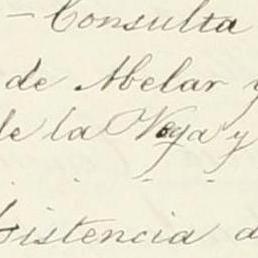 - Consulta
de Abelar y
de la Vega y
sistencia d